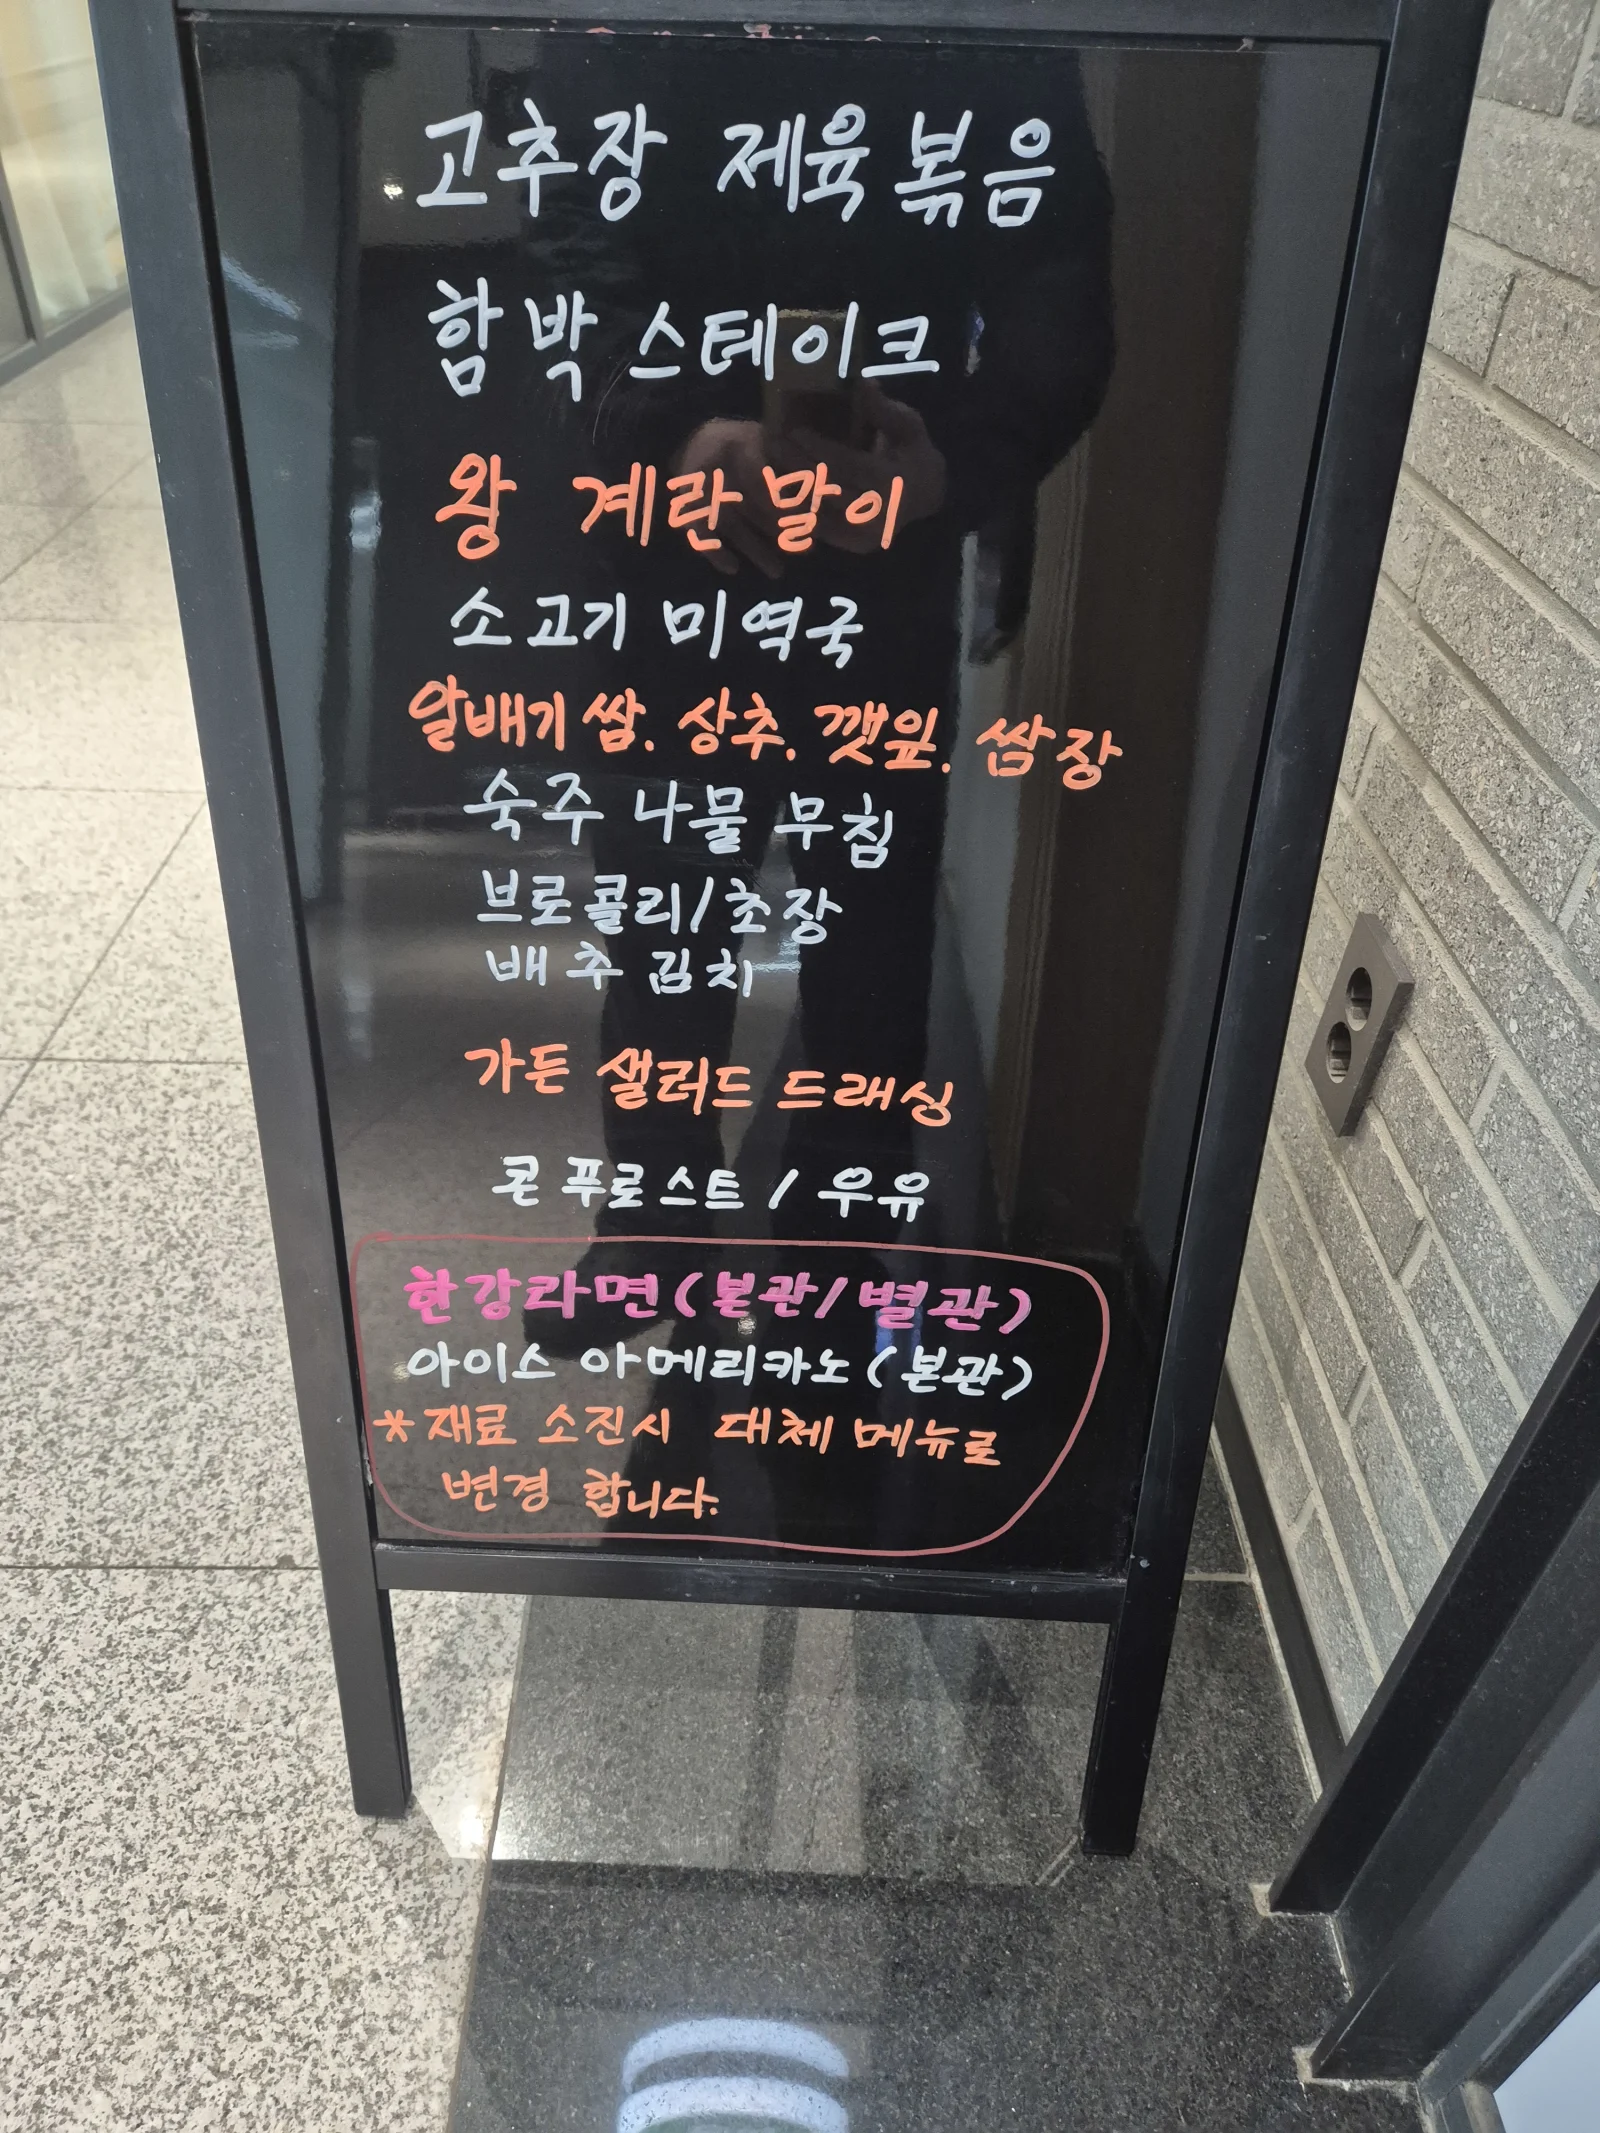 고추장 제육볶음
함박 스테이크
왕 계란말이
소고기 미역국
알배기쌈. 상추. 깻잎. 쌈장
숙주 나물 무침
브로콜리/초장
배추 김치
가든 샐러드 드래싱
콘푸로스트 / 우유
한강라면(본관/별관)
아이스 아메리카노(본관)
*재료 소진시 대체 메뉴로
변경 합니다.